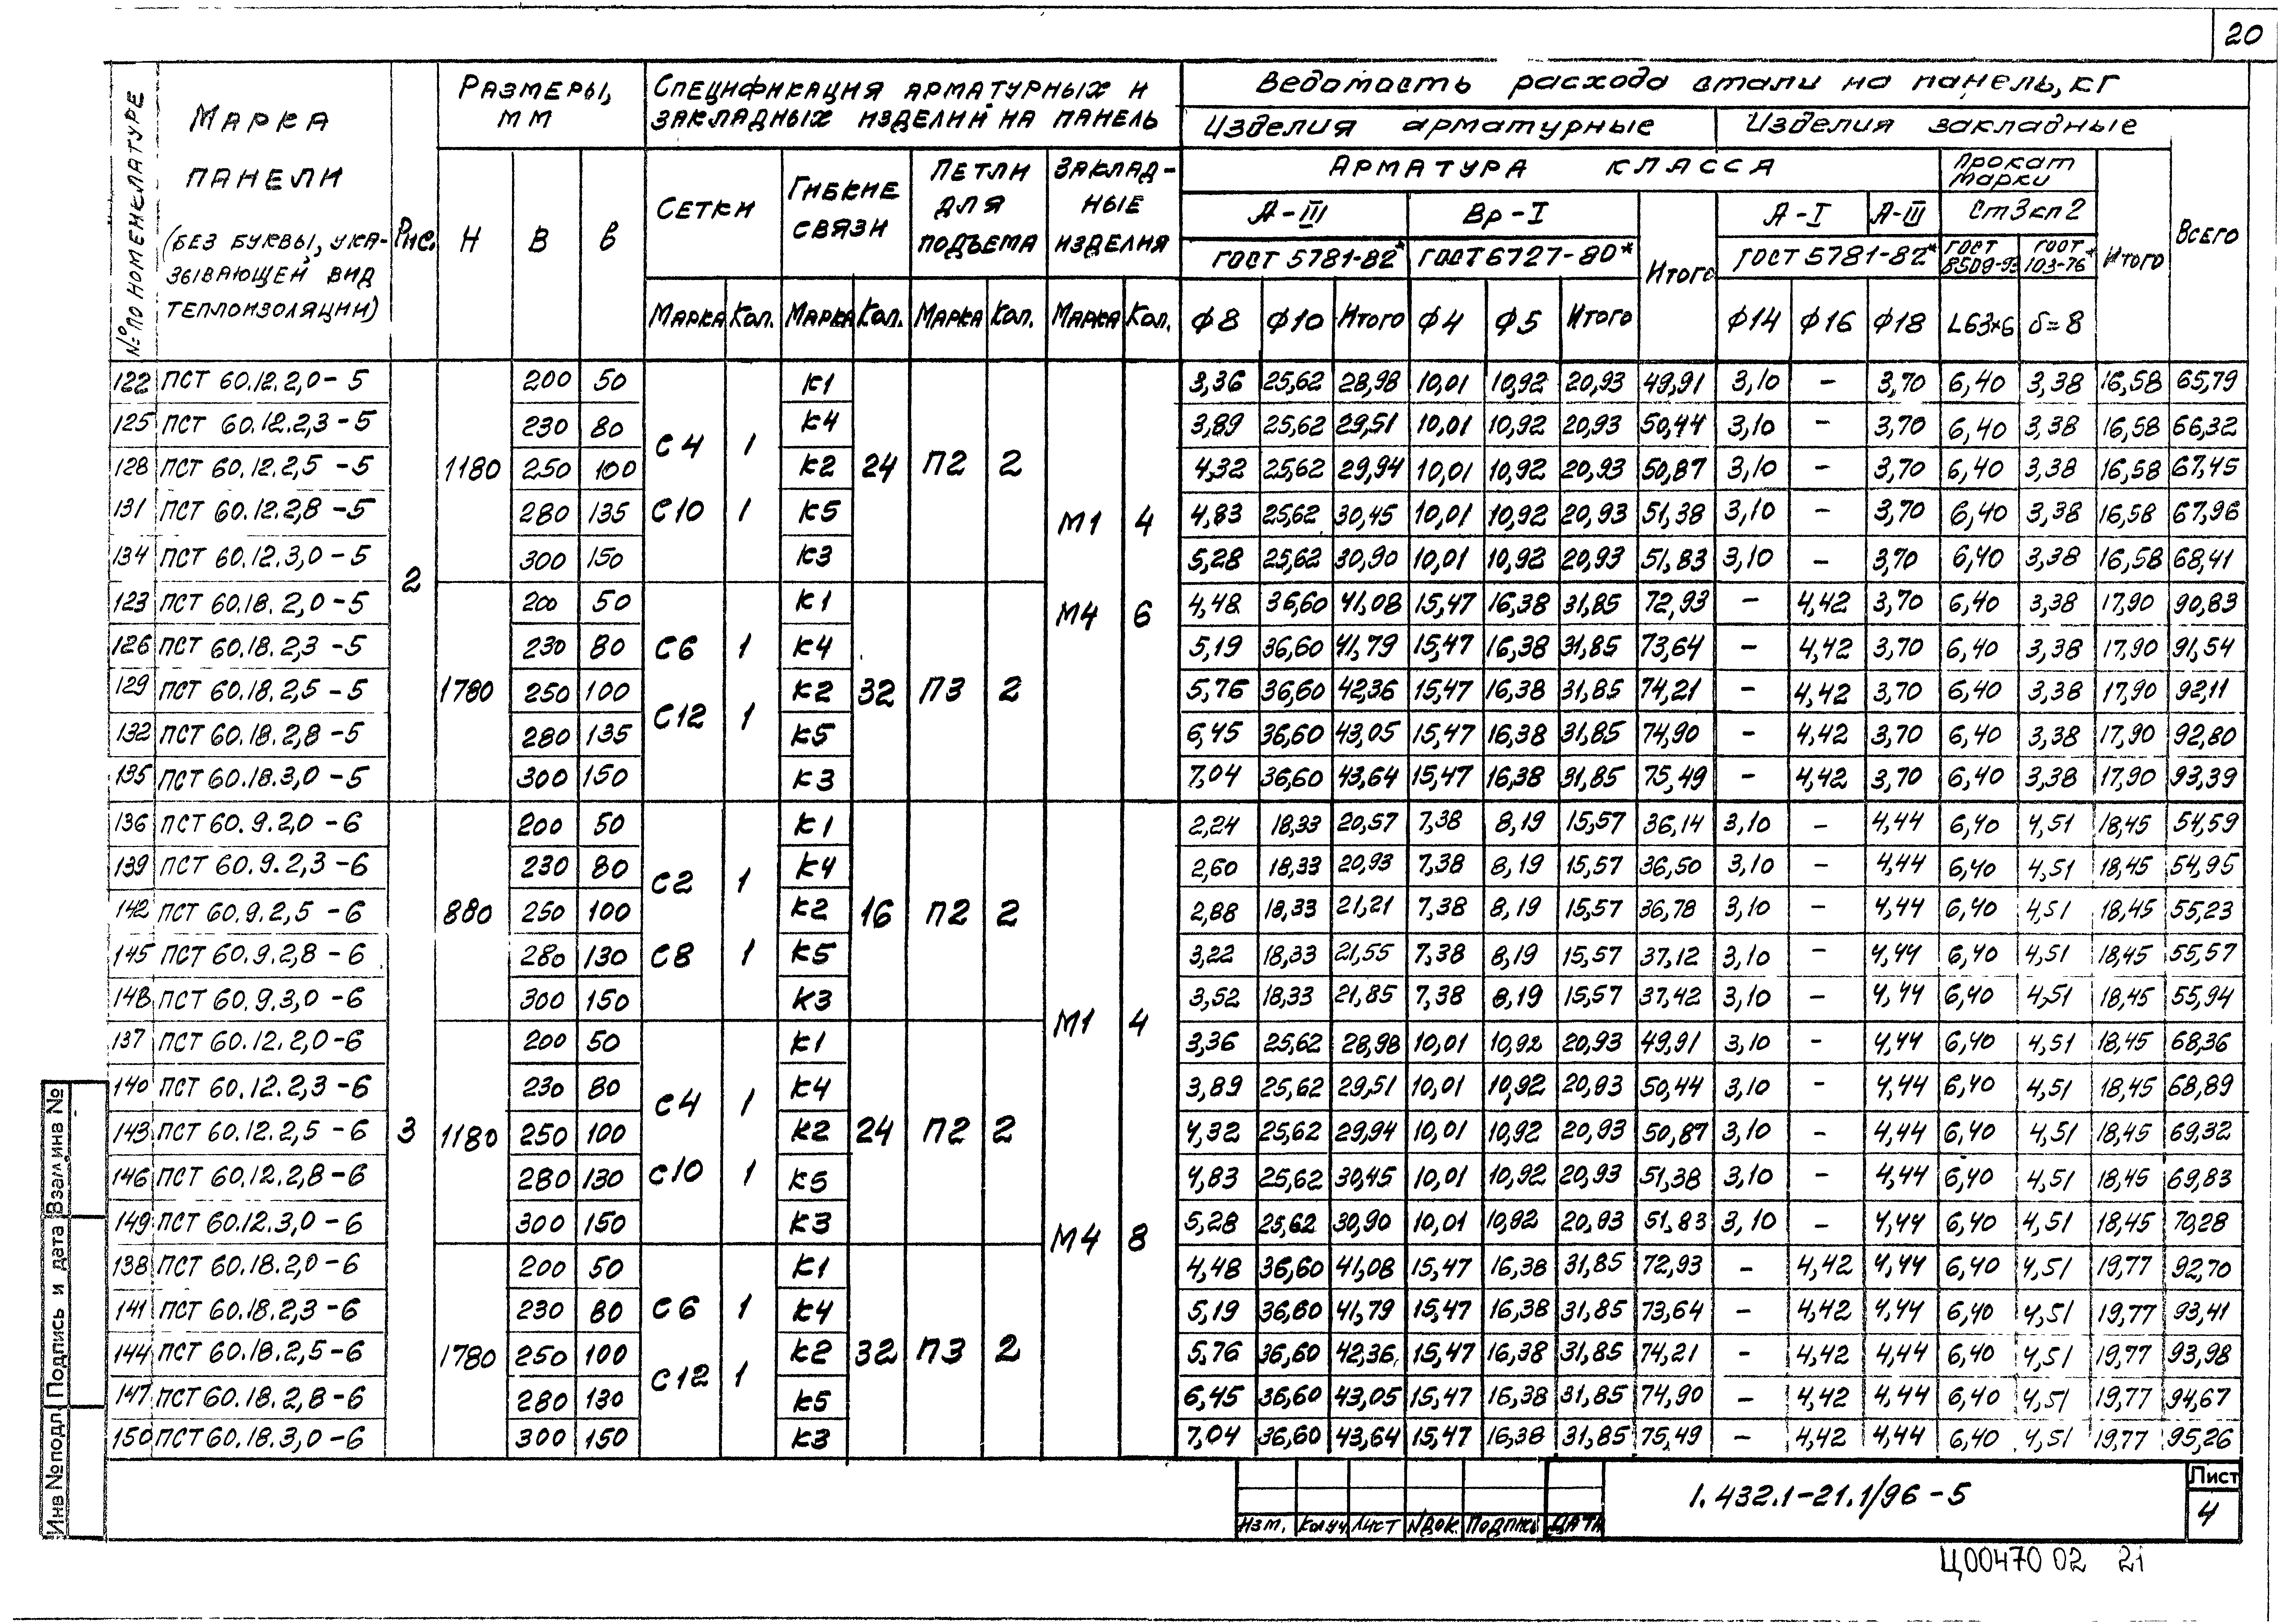 20
№ по номенклатуре
Марка панели (без буквы, указывающей вид теплоизоляции)
Рис.
Размеры, мм
Спецификация арматурных и закладных изделий на панель
Ведомость расхода стали на панель, кг
Изделия арматурные
Изделия закладные
Арматура класса
Прокат марки
Всего
H
B
в
Сетки
Гибкие связи
Петли для подъема
Закладные изделия
А-III
Вр-I
Итого
А-I
А-III
Ст3кп2
Итого
ГОСТ 5781-82*
ГОСТ 6727-80*
ГОСТ 5781-82*
ГОСТ 8509-93
ГОСТ 103-76*
Марка Кол. Марка Кол. Марка Кол. Марка Кол. Ф8 Ф10 Итого Ф4 Ф5 Итого Ф14 Ф16 Ф18 L63×6 δ=8
122 ПСТ 60.12.2,0-5 200 50 К1 3,36 25,62 28,98 10,01 10,92 20,93 49,91 3,10 – 3,70 6,40 3,38 16,58 65,79
125 ПСТ 60.12.2,3-5 230 80 К4 3,89 25,62 29,51 10,01 10,92 20,93 50,44 3,10 – 3,70 6,40 3,38 16,58 66,32
С4 1
128 ПСТ 60.12.2,5-5 1180 250 100 К2 24 П2 2 4,32 25,62 29,94 10,01 10,92 20,93 50,87 3,10 – 3,70 6,40 3,38 16,58 67,45
131 ПСТ 60.12.2,8-5 280 135 С10 1 К5 М1 4 4,83 25,62 30,45 10,01 10,92 20,93 51,38 3,10 – 3,70 6,40 3,38 16,58 67,96
134 ПСТ 60.12.3,0-5 300 150 К3 5,28 25,62 30,90 10,01 10,92 20,93 51,83 3,10 – 3,70 6,40 3,38 16,58 68,41
2
123 ПСТ 60.18.2,0-5 200 50 К1 М4 6 4,48 36,60 41,08 15,47 16,38 31,85 72,93 – 4,42 3,70 6,40 3,38 17,90 90,83
126 ПСТ 60.18.2,3-5 230 80 С6 1 К4 5,19 36,60 41,79 15,47 16,38 31,85 73,64 – 4,42 3,70 6,40 3,38 17,90 91,54
129 ПСТ 60.18.2,5-5 1780 250 100 К2 32 П3 2 5,76 36,60 42,36 15,47 16,38 31,85 74,21 – 4,42 3,70 6,40 3,38 17,90 92,11
С12 1
132 ПСТ 60.18.2,8-5 280 135 К5 6,45 36,60 43,05 15,47 16,38 31,85 74,90 – 4,42 3,70 6,40 3,38 17,90 92,80
135 ПСТ 60.18.3,0-5 300 150 К3 7,04 36,60 43,64 15,47 16,38 31,85 75,49 – 4,42 3,70 6,40 3,38 17,90 93,39
136 ПСТ 60.9.2,0-6 200 50 К1 2,24 18,33 20,57 7,38 8,19 15,57 36,14 3,10 – 4,44 6,40 4,51 18,45 54,59
139 ПСТ 60.9.2,3-6 230 80 К4 2,60 18,33 20,93 7,38 8,19 15,57 36,50 3,10 – 4,44 6,40 4,51 18,45 54,95
С2 1
142 ПСТ 60.9.2,5-6 880 250 100 К2 16 П2 2 2,88 18,33 21,21 7,38 8,19 15,57 36,78 3,10 – 4,44 6,40 4,51 18,45 55,23
145 ПСТ 60.9.2,8-6 280 130 С8 1 К5 3,22 18,33 21,55 7,38 8,19 15,57 37,12 3,10 – 4,44 6,40 4,51 18,45 55,57
148 ПСТ 60.9.3,0-6 300 150 К3 3,52 18,33 21,85 7,38 8,19 15,57 37,42 3,10 – 4,44 6,40 4,51 18,45 55,94
М1 4
137 ПСТ 60.12.2,0-6 200 50 К1 3,36 25,62 28,98 10,01 10,92 20,93 49,91 3,10 – 4,44 6,40 4,51 18,45 68,36
140 ПСТ 60.12.2,3-6 230 80 К4 3,89 25,62 29,51 10,01 10,92 20,93 50,44 3,10 – 4,44 6,40 4,51 18,45 68,89
С4 1
143 ПСТ 60.12.2,5-6 3 1180 250 100 К2 24 П2 2 4,32 25,62 29,94 10,01 10,92 20,93 50,87 3,10 – 4,44 6,40 4,51 18,45 69,32
146 ПСТ 60.12.2,8-6 280 130 С10 1 К5 4,83 25,62 30,45 10,01 10,92 20,93 51,38 3,10 – 4,44 6,40 4,51 18,45 69,83
149 ПСТ 60.12.3,0-6 300 150 К3 5,28 25,62 30,90 10,01 10,92 20,93 51,83 3,10 – 4,44 6,40 4,51 18,45 70,28
М4 8
138 ПСТ 60.18.2,0-6 200 50 К1 4,48 36,60 41,08 15,47 16,38 31,85 72,93 – 4,42 4,44 6,40 4,51 19,77 92,70
141 ПСТ 60.18.2,3-6 230 80 С6 1 К4 5,19 36,60 41,79 15,47 16,38 31,85 73,64 – 4,42 4,44 6,40 4,51 19,77 93,41
144 ПСТ 60.18.2,5-6 1780 250 100 К2 32 П3 2 5,76 36,60 42,36 15,47 16,38 31,85 74,21 – 4,42 4,44 6,40 4,51 19,77 93,98
С12 1
147 ПСТ 60.18.2,8-6 280 130 К5 6,45 36,60 43,05 15,47 16,38 31,85 74,90 – 4,42 4,44 6,40 4,51 19,77 94,67
150 ПСТ 60.18.3,0-6 300 150 К3 7,04 36,60 43,64 15,47 16,38 31,85 75,49 – 4,42 4,44 6,40 4,51 19,77 95,26
Инв № подл. Подпись и дата Взам.инв №
Изм. Кол.уч Лист №Док. Подпись Дата
1.432.1-21.1/96-5
Лист
4
Ц00470 02 21